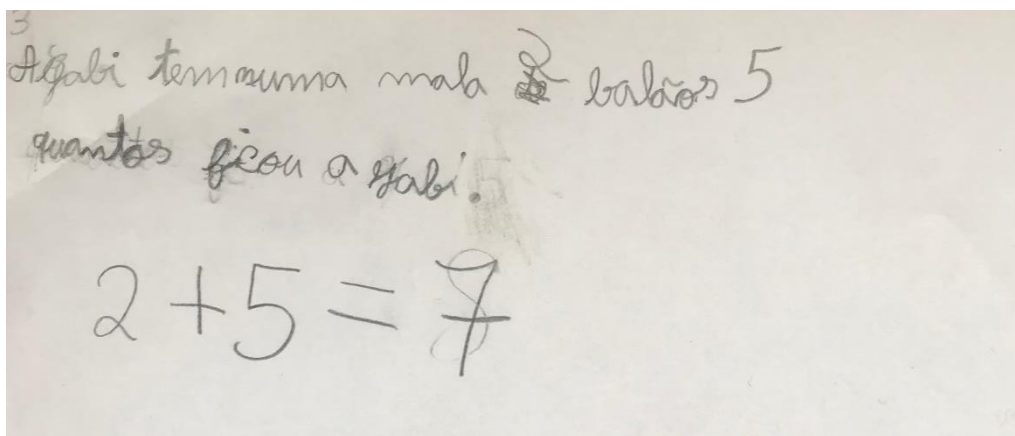 3
A gabi tem numa mala 2 balãos 5
quantos ficou a gabi.
2 + 5 = 7